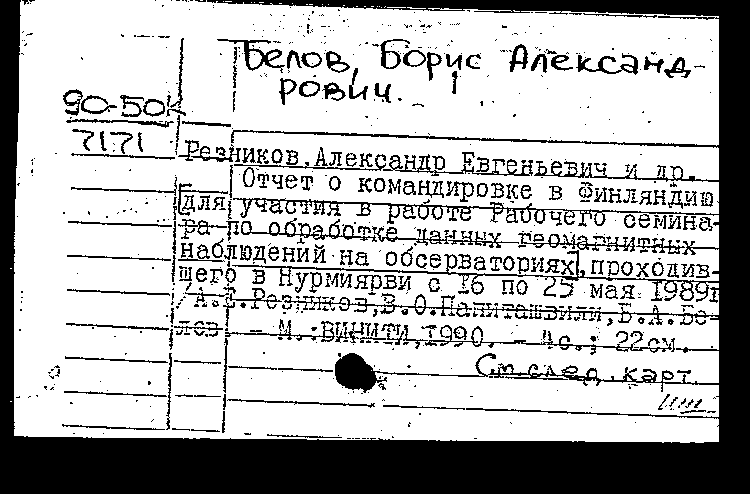 Белов, Борис Александ-
рович.
90-50К
7171
Резников, Александр Евгеньевич и др.
Отчет о командировке в Финляндию
[для участия в работе Рабочего семина-
ра по обработке данных геомагнитных
наблюдений на обсерваториях], проходив-
шего в Нурмиярви с 16 по 25 мая 1989г
/А.Е.Резников, В.О.Папиташвили, Б.А.Бе-
лов. - М.:ВИНИТИ, 1990. - 4с.; 22см.
См. след. карт.